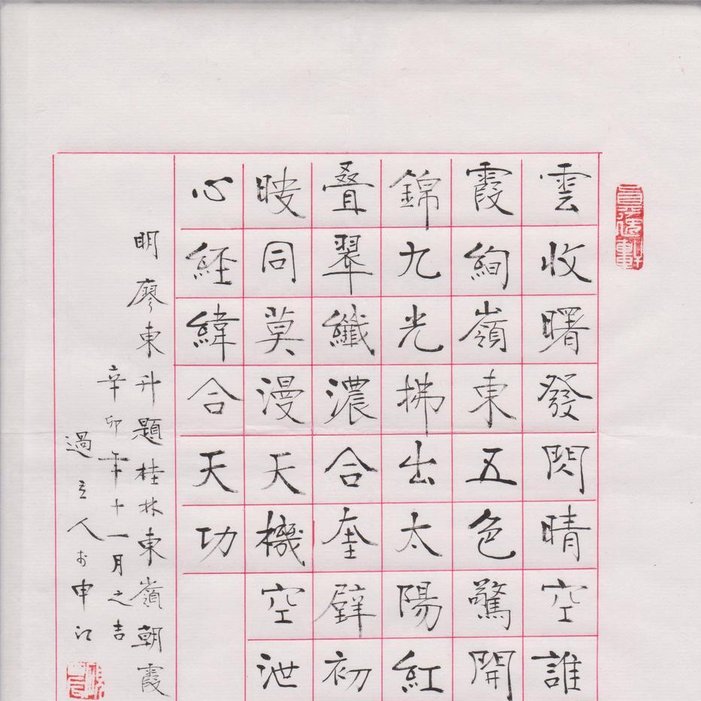 雲收曙發閃晴空誰
霞絢嶺東五色驚開
錦九光拂出太陽紅
叠翠纖濃合奎壁初
同莫漫天機空泄
心経緯合天功
明廖東升題桂林東嶺朝霞
辛卯年十一月之吉
過立人於申江